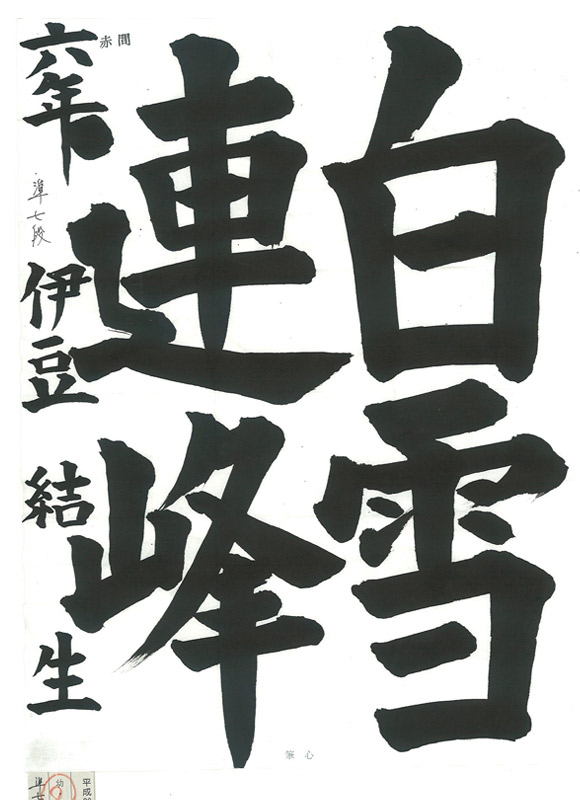 白雪
連峰
赤間
六年
準七段
伊豆 結生
心筆
幼
平成
準七